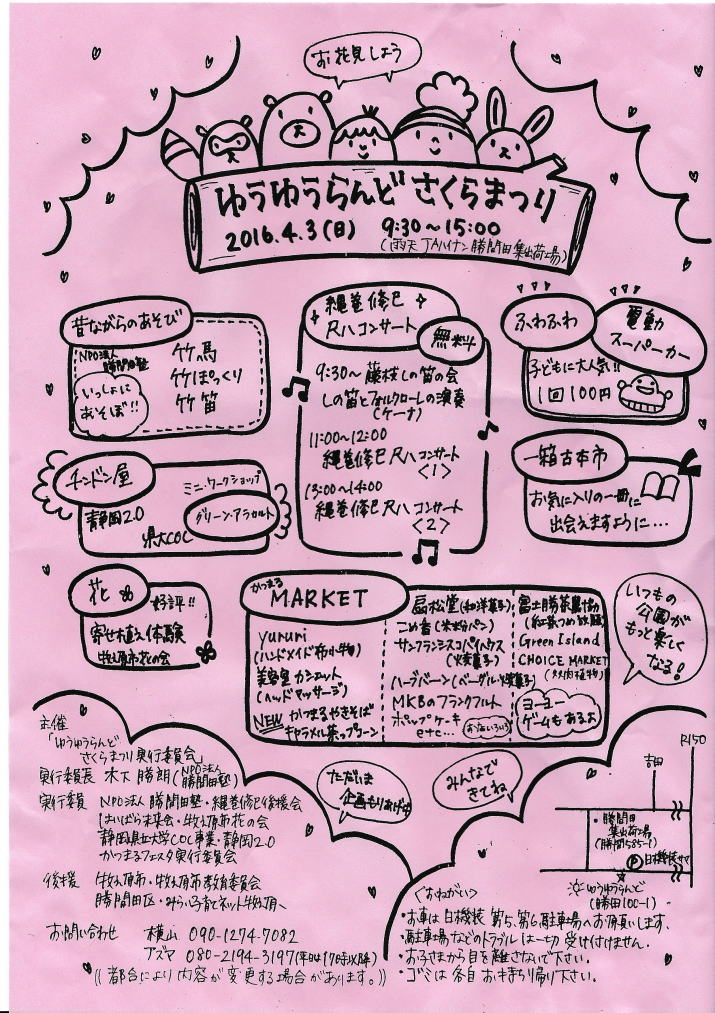 お花見しよう
ゆうゆうらんど さくらまつり
2016.4.3(日) 9:30〜15:00
(雨天 JAハイナン勝間田集出荷場)
昔ながらのあそび
NPO法人
勝間田塾
いっしょに
あそぼ!!
竹馬
竹ぽっくり
竹笛
縄巻修巳
尺八コンサート
無料
9:30〜 藤枝しの笛の会
しの笛とフォルクローレの演奏
(ケーナ)
11:00〜12:00
縄巻修巳 尺八コンサート
<1>
13:00〜14:00
縄巻修巳 尺八コンサート
<2>
ふわふわ
電動
スーパーカー
子どもに大人気!!
1回100円
一箱古本市
お気に入りの一冊に
出会えますように…
チンドン屋
静岡2.0
県大COC
ミニ・ワークショップ
グリーン・アラカルト
花
好評!!
寄せ植え体験
牧之原市花の会
かつまる
MARKET
yururi
(ハンドメイド布小物)
美容室 カシェット
(ヘッドマッサージ)
NEW かつまるやきそば
キャラメル茶ップコーン
扇松堂(和洋菓子)
こめ香(米粉パン)
サンフランシスコパイハウス
(焼菓子)
ハーブバーン(ベーグル・焼菓子)
MKBのフランクフルト
ポップケーキ
etc…
富士勝茶農協
Green Island
CHOICE MARKET
(多肉植物)
ヨーヨー
ゲームもあるよ
いつもの
公園が
もっと楽しく
なる!
主催
「ゆうゆうらんど
さくらまつり実行委員会」
実行委員長 木下 勝朗(NPO法人 勝間田塾)
実行委員 NPO法人 勝間田塾・縄巻修巳後援会
はいばら未来会・牧之原市花の会
静岡県立大学COC事業・静岡2.0
かつまるフェスタ実行委員会
後援 牧之原市・牧之原市教育委員会
勝間田区・みらい子育てネット牧之原
お問い合わせ 横山 090-1274-7082
アズマ 080-2194-3197(平日は17時以降)
((都合により内容が変更する場合があります。))
ただいま
企画もりあげ中
みんなで
きてね
R150
吉田
・勝間田
集出荷場
(勝間585-1)
P 日機装サマ
☆ゆうゆうらんど
(勝田100-1)
<おねがい>
・お車は日機装 第5、第6駐車場へお願いします。
・駐車場などのトラブルは一切受け付けません。
・お子さまから目を離さないで下さい。
・ゴミは各自お持ち帰り下さい。